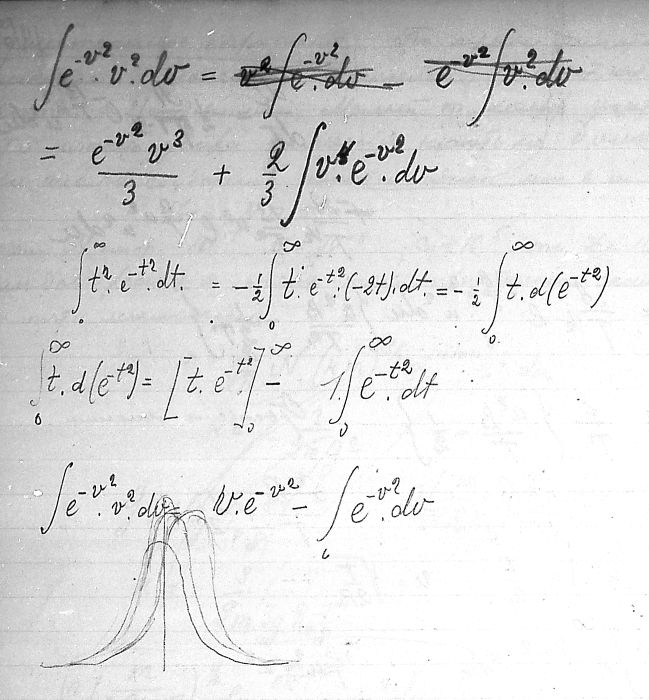 ∫e^{-v²}·v²·dv = v²∫e^{-v²}·dv - e^{-v²}∫v²·dv
= e^{-v²} v³ / 3 + 2/3 ∫v⁴·e^{-v²}·dv
∫₀^∞ t²·e^{-t²}·dt· = -½∫₀^∞ t·e^{-t²}·(-2t)·dt· = -½∫₀^∞ t·d(e^{-t²})
∫₀^∞ t·d(e^{-t²}) = [t·e^{-t²}]₀^∞ - 1·∫₀^∞ e^{-t²}·dt
∫e^{-v²}·v²·dv = v·e^{-v²} - ∫e^{-v²}·dv